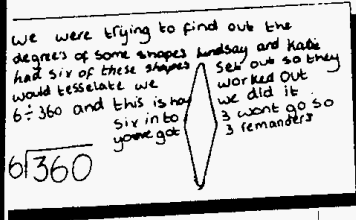 we were trying to find out the
degrees of some shapes Lindsay and Katie
had six of these shapes set out so they
would tesselate we worked out
6÷360 and this is how we did it.
six into 3 wont go so
youve got 3 remanders
6)360